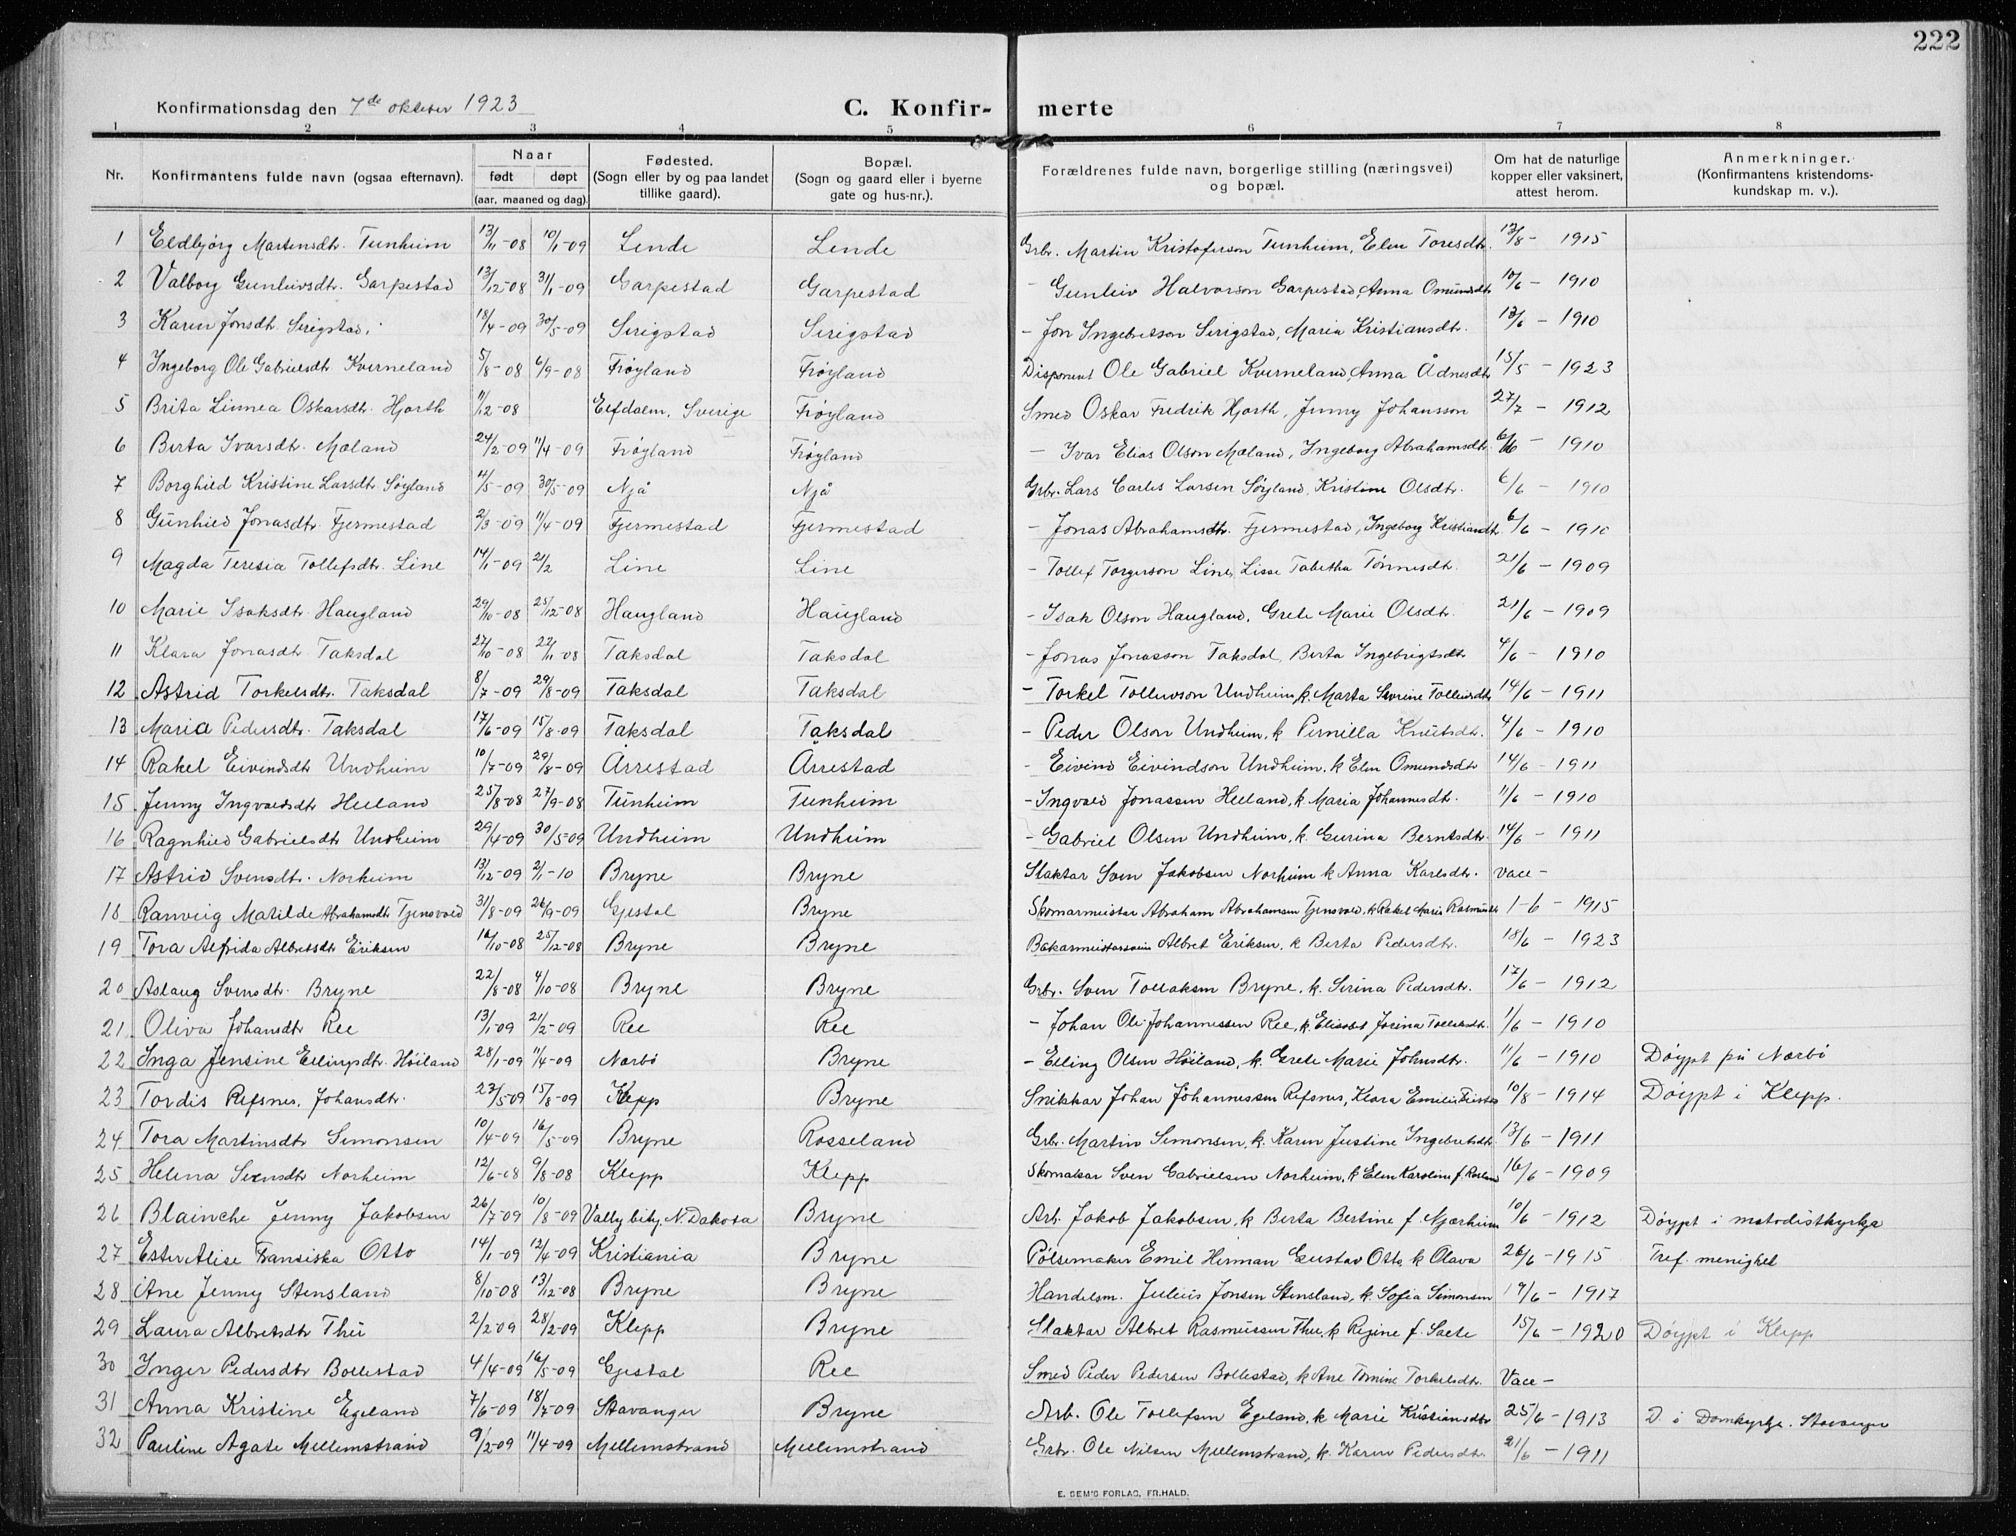 222
Konfirmationsdag den 7de oktober 1923
C. Konfir- merte
1 2 3 4 5 6 7 8
Nr. Konfirmantens fulde navn (ogsaa efternavn). Naar født døpt (aar, maaned og dag). Fødested. (Sogn eller by og paa landet tillike gaard). Bopæl. (Sogn og gaard eller i byerne gate og hus-nr.). Forældrenes fulde navn, borgerlige stilling (næringsvei) og bopæl. Om hat de naturlige kopper eller vaksinert, attest herom. Anmerkninger. (Konfirmantens kristendoms-kundskap m. v.).
1 Eldbjørg Martinsdtr. Tunheim 13/11-08 10/1-09 Lende Lende Grbr. Martin Kristoferson Tunheim, Elen Toresdtr. 12/8 - 1915
2 Valborg Gunleivsdtr. Garpestad 13/12-08 31/1-09 Garpestad Garpestad - Gunleiv Halvorson Garpestad, Anna Omundsdtr 10/6 - 1910
3 Karen Jonsdtr. Serigstad. 18/4-09 30/5-09 Serigstad Serigstad - Jon Ingebretson Serigstad, Maria Kristiansdtr. 13/6 - 1910
4 Ingeborg Ole Gabrielsdtr Kverneland 5/8-08 6/9-08 Frøyland Frøyland Disponent Ole Gabriel Kverneland, Anna Ådnesdtr 15/5 - 1923
5 Brita Linnea Oskarsdtr. Hjorth 11/12-08 Elfdalem, Sverige Frøyland Smed Oskar Fredrik Hjorth, Jenny Johansson 27/7 - 1912
6 Berta Ivarsdtr. Mæland 24/2-09 11/4-09 Frøyland Frøyland - Ivar Elias Olson Mæland, Ingeborg Abrahamsdtr. 6/6 - 1910
7 Borghild Kristine Larsdtr Søyland 11/5-09 30/5-09 Njå Njå Grbr. Lars Carles Larsen Søyland, Kristine Olsdtr. 6/6 - 1910
8 Gunhild Jonasdtr. Fjermestad 2/3-09 11/4-09 Fjermestad Fjermestad - Jonas Abrahamsdtr. Fjermestad, Ingeborg Kristiandtr. 6/6 - 1910
9 Magda Teresia Tollefsdtr. Line 14/1-09 21/2 Line Line - Tollef Torgerson Line, Lisse Tabetha Tønnesdtr. 21/6 - 1909
10 Marie Isaksdtr. Haugland 29/10-08 25/12-08 Haugland Haugland - Isak Olson Haugland, Grete Marie Olsdtr. 21/6 - 1909
11 Klara Jonasdtr Taksdal 27/10-08 22/11-08 Taksdal Taksdal - Jonas Jonasson Taksdal, Berta Ingebrigtsdtr 4/6 - 1910
12 Astrid Torkelsdtr. Taksdal 8/7-09 29/8-09 Taksdal Taksdal - Torkel Tollevson Undheim, k. Marta Severine Tolleivsdtr 14/6 - 1911
13 Maria Pedersdtr. Taksdal 17/6-09 15/8-09 Taksdal Taksdal - Peder Olson Undheim, k Pernilla Knutsdtr. 4/6 - 1910
14 Rakel Eivindsdtr Undheim 10/7-09 29/8-09 Årrestad Årrestad - Eivind Eivindson Undheim, k Elen Omundsdtr 14/6 - 1911
15 Jenny Ingvaldsdtr Helland 25/8-08 27/9-08 Tunheim Tunheim - Ingvald Jonassen Helland, k. Maria Johannesdtr. 11/6 - 1910
16 Ragnhild Gabrielsdtr Undheim 29/4-09 30/5-09 Undheim Undheim - Gabriel Olsen Undheim, k. Gurina Berntsdtr. 14/6 - 1911
17 Astrid Svensdtr. Norheim 13/12-09 2/1-10 Bryne Bryne Slaktar Sven Jakobsen Norheim k Anna Karlsdtr. Vacc-
18 Ranveig Matilde Abrahamsdtr Tjensvold 31/8-09 26/9-09 Gjestal Bryne Skomarmeister Abraham Abrahamsen Tjensvold, k Rakel Marie Rasmusdtr 1-6 - 1915
19 Tora Alfrida Albretsdtr Eriksen 16/10-08 25/12-08 Bryne Bryne Bakarmeistersvein Albret Eriksen, k Berta Pedersdtr. 18/6 - 1923
20 Aslaug Svensdtr. Bryne 22/8-08 4/10-08 Bryne Bryne Grbr. Sven Tollaksen Bryne, k. Serina Pedersdtr. 17/6 - 1912
21 Oliva Johansdtr Ree 13/1-09 21/2-09 Ree Ree - Johan Ole Johannessen Ree, k. Elisabet Jorina Tollaksdtr. 1/6 - 1910
22 Inga Jensine Ellingsdtr. Høiland 28/1-09 11/4-09 Nærbø Bryne - Elling Olsen Høiland, k. Grete Marie Johnsdtr. 11/6 - 1910 Døypt på Nærbø
23 Tordis Refsnes, Johansdtr. 23/5-09 15/8-09 Klepp Bryne Snikkar Johan Johannessen Refsnes, Klara Emilie 10/8 - 1914 Døypt i Klepp.
24 Tora Martinsdtr Simonsen 10/4-09 16/5-09 Bryne Rosseland Grbr. Martin Simonsen, k. Karen Justine Ingebretsdtr 13/6 - 1911
25 Helena Svensdtr Norheim 12/6-08 9/8-08 Klepp Klepp Skomakar Sven Gabrielsen Norheim, k Elen Karoline f. 16/6 - 1909
26 Blainche Jenny Jakobsen 26/7-09 10/8-09 Vally bity, N. Dakota Bryne Arb. Jakob Jakobsen, k Berta Bertine f. Njærheim 10/6 - 1912 Døypt i metodistkyrkja
27 Ester Alise Fransiska Otto 14/1-09 12/4-09 Kristiania Bryne Pølsemaker Emil Herman Gustav Otto k Olava 26/6 - 1915 Tref. menighet
28 Ane Jenny Stensland 8/10-08 13/12-08 Bryne Bryne Handelsm. Julius Jonsen Stensland, k. Sofia Simonsen 19/6 - 1917
29 Laura Albretsdtr Thu 2/2-09 28/2-09 Klepp Bryne Slaktar Albret Rasmussen Thu, k Regine f. Saele 15/6 - 1920 Døypt i Klepp
30 Inger Pedersdtr Bollestad 4/4-09 16/5-09 Gjestal Ree Smed Peder Pedersen Bollestad, k Ane Tomine Torkelsdtr. Vacc-
31 Anna Kristine Egeland 7/6-09 18/7-09 Stavanger Bryne Arb. Ole Tollefsen Egeland, k Marie Kristiansdtr 25/6 - 1913 D. i Domkyrkja. Stavanger
32 Pauline Agate Mellemstrand 9/2-09 11/4-09 Mellemstrand Mellemstrand Grbr. Ole Nilsen Mellemstrand, k. Karen Pedersdtr. 21/6 - 1911
E. SEM'S FORLAG, FR.HALD.